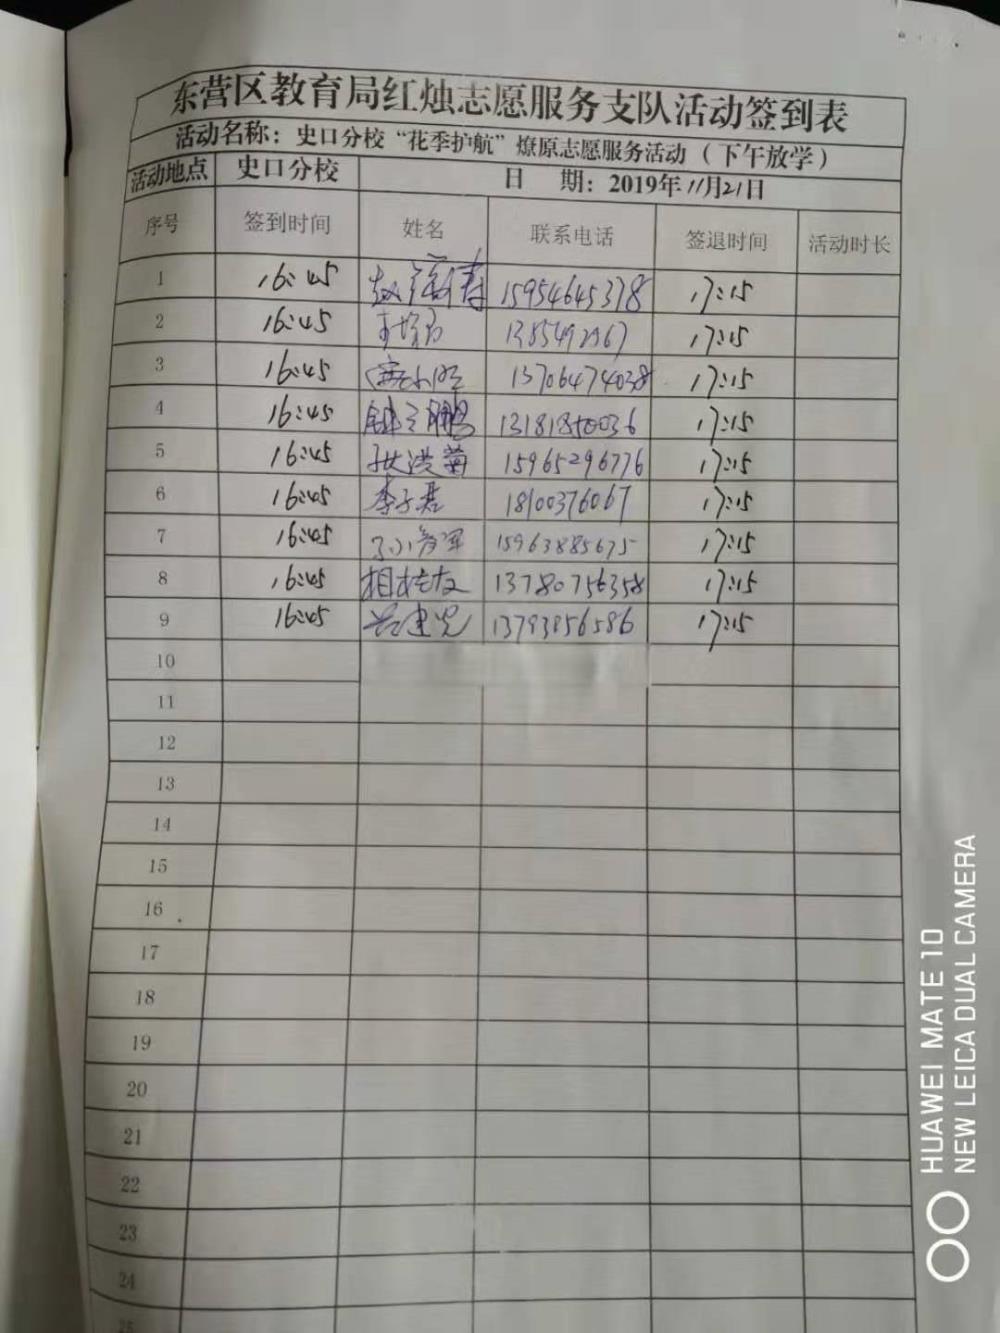 东营区教育局红烛志愿服务支队活动签到表
活动名称：史口分校“花季护航”燎原志愿服务活动（下午放学）
活动地点 史口分校 日 期：2019年11月21日
序号 签到时间 姓名 联系电话 签退时间 活动时长
1 16:45 15954645378 17:15
2 16:45 17:15
3 16:45 13706474038 17:15
4 16:45 13181850036 17:15
5 16:45 15965296776 17:15
6 16:45 李子君 18100376067 17:15
7 16:45 15963885675 17:15
8 16:45 13780756358 17:15
9 16:45 13793856586 17:15
10
11
12
13
14
15
16
17
18
19
20
21
22
23
24
25
HUAWEI MATE 10
NEW LEICA DUAL CAMERA